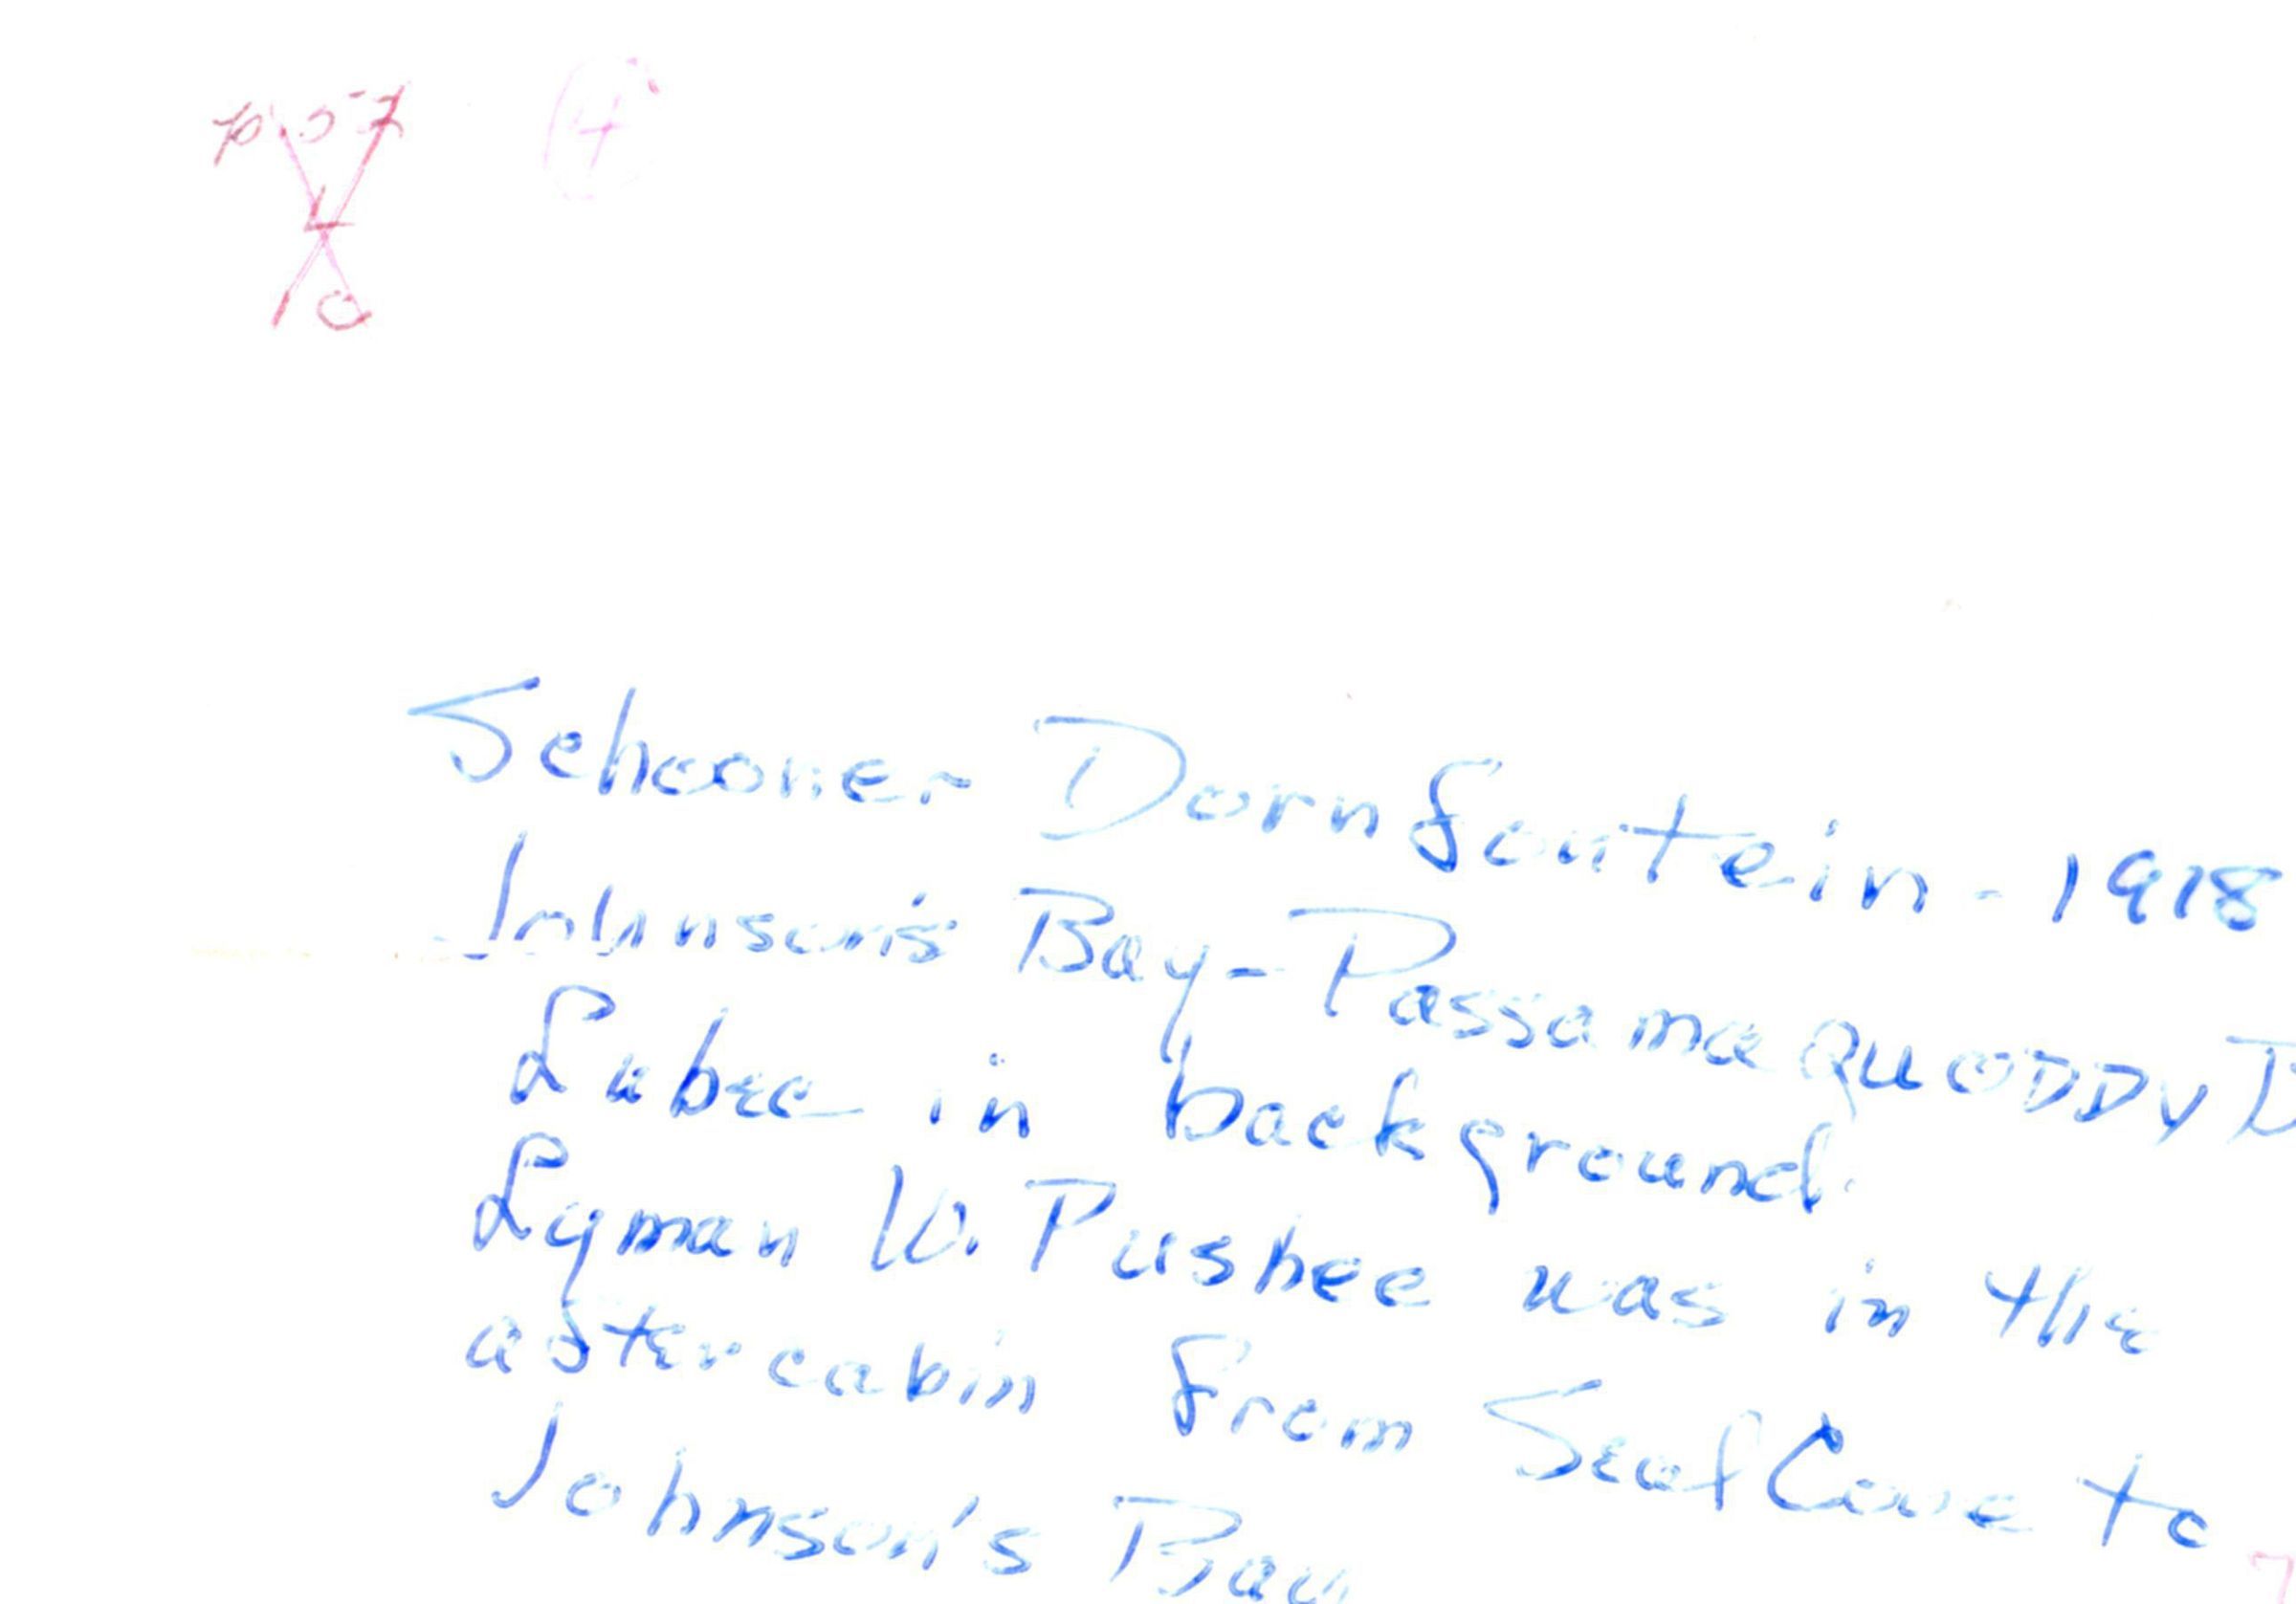 4
Schooner Dornfontein - 1918
Johnson's Bay - PassamaQuoDDy
Lubec in background.
Lyman W. Pushee was in the
after cabin from Seal Cove to
Johnson's Bay